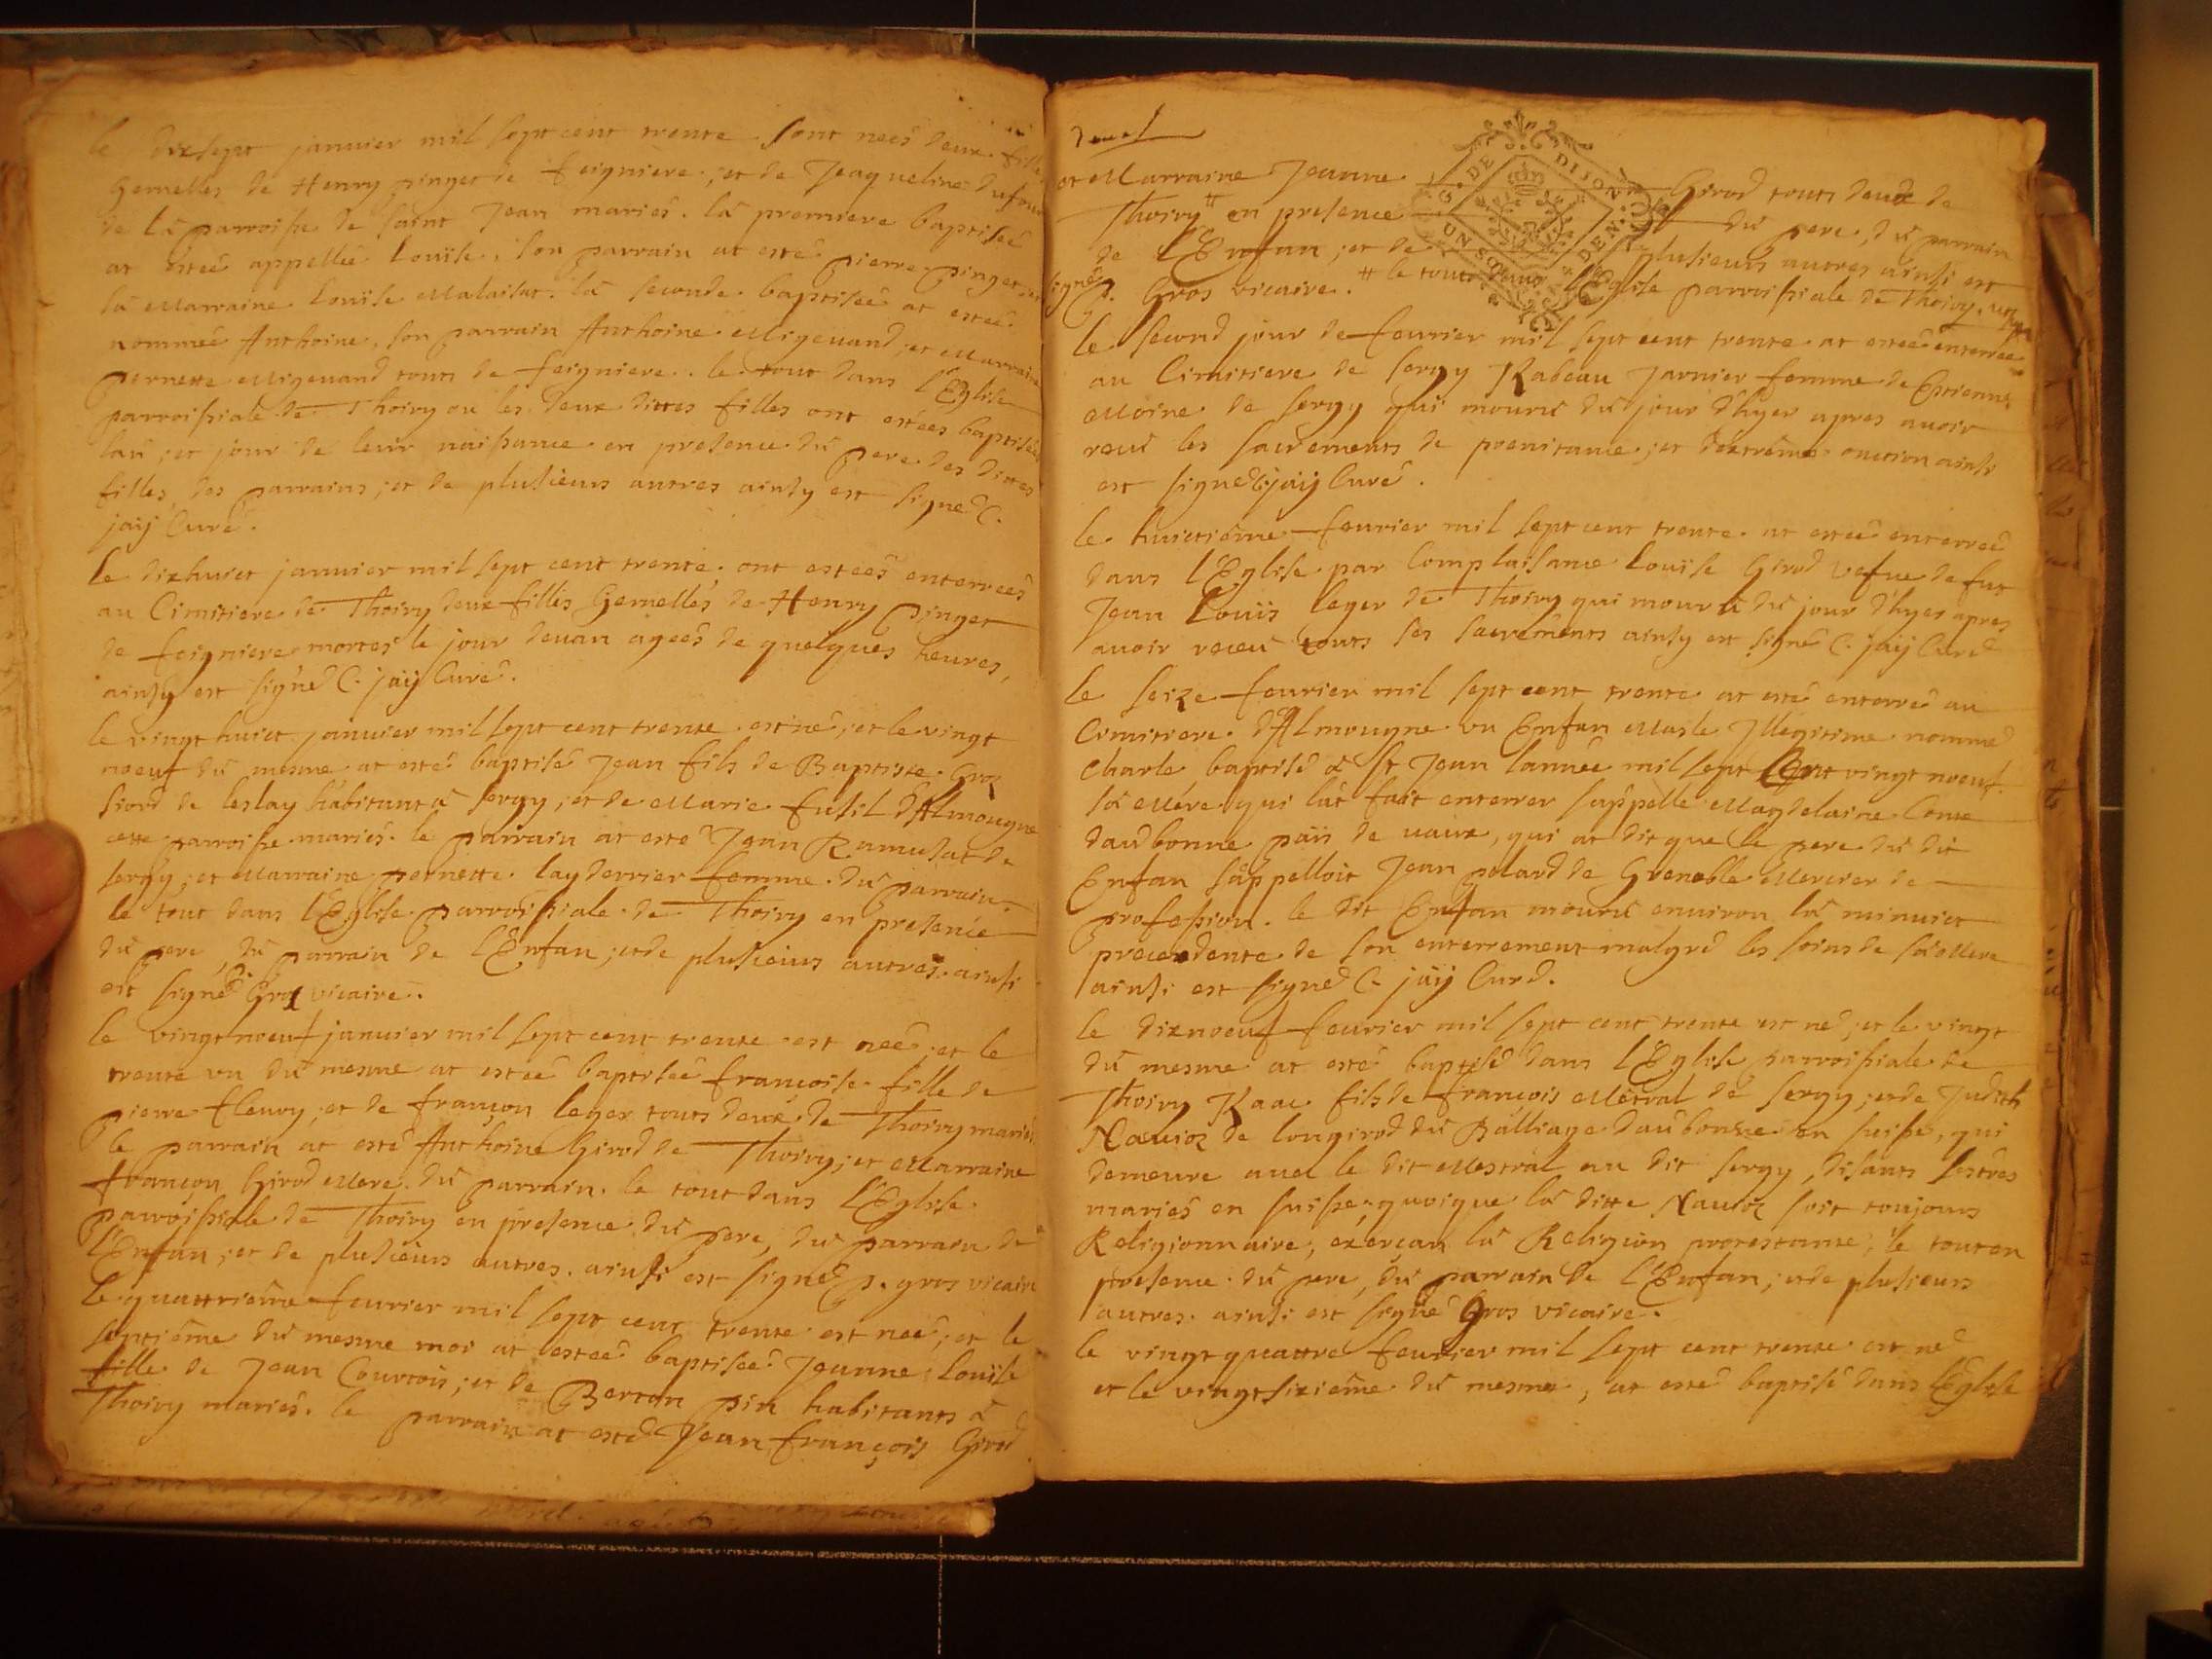 le dixsept januier mil sept cent trente sont neés deux fille
Gemelles de Henry pinget de feigniere, et de Jaqueline dufour
de la parroisse de saint Jean mariés. la premiere baptiseé
at esteé appellée Louise, son parrain at esté pierre pinget, et
la Marraine Louise Malaisat. la seconde baptiseé at esteé
nommeé Anthoine, son parrain Anthoine Migeuand, et Marraine
pernette Migeuand touts de feigniere. le tout dans l'Eglise
parroissiale de Thoiry ou les deux dittes filles ont estées baptisées
lan, et jour de leur naissance en presence du pere des dittes
filles, des parrains, et de plusieurs autres ainsy est signé C.
jaij Curé.
le dixhuict januier mil sept cent trente, ont esteés enterreés
au Cimitiere de Thoiry deux filles Gemelles de Henry pinget
de feigniere mortes le jour deuan ageés de quelques heures,
ainsy est signé C. jaij Curé.
le vingt huict januier mil sept cent trente est né, et le vingt
noeuf du mesme at esté baptisé Jean fils de Baptiste Groz
fiord de leslay habitant a sergy, et de Marie fusil d'Almougne
cette parroisse mariés. le parrain at esté Jean Ramusat de
sergy, et Marraine pernette layderrier femme du parrain.
le tout dans l'Eglise parroissiale de Thoiry en presence
du pere, du parrain de l'Enfan, et de plusieurs autres. ainsi
est signé Gros vicaire.
le vingt noeuf januier mil sept cent trente est neé, et le
trente vn du mesme at esteé baptiseé françoise fille de
pierre fleury, et de françon leger touts deux de Thoiry mariés
le parrain at esté Anthoine Girod de Thoiry, et Marraine
françon Girod Mere du parrain. le tout dans l'Eglise
parroissiale de Thoiry en presence du pere, du parrain de
l'Enfan, et de plusieurs autres. ainsi est signé p. gros vicaire
le quattrieme feurier mil sept cent trente est neé, et le
septiême du mesme moi at esteé baptiseé Jeanne Louise
fille de Jean Courtois, et de Berton pin habitants a
Thoiry mariés. le parrain at esté Jean françois Girod
et Marraine Jeanne Girod touts deux de
Thoiry # en presence du pere, du parrain
de l'Enfan, et de plusieurs autres ainsi est
signé p. Gros vicaire. # le tout dans l'Eglise parroissiale de Thoiry.
G. DE DIJON
UN SOL
DEN.
le second jour de feurier mil sept cent trente at esteé enterreé
au Cimitiere de sergy Rabeau Jarnier femme de Etienne
Moine de sergy qui mourut du jour d'hyer apres auoir
receu les sacrements de poenitance, et dextrême onction ainsi
est signé C jaij Curé.
le huictiême feurier mil sept cent trente at esteé enterreé
dans l'Eglise par Complaisance Louise Girod vefue de fut
Jean Louis leger de Thoiry qui mourut du jour d'hyer apres
auoir receu touts ses sacrements ainsy est signé C. jaij Curé
le seize feurier mil sept cent trente at esté enterré au
Cimitiere d'Almougne vn Enfan Masle Jllegitime nommé
Charle baptisé a st Jean lannée mil sept Cent vingt noeuf.
sa Mére qui lat fait enterrer s'appelle Magdelaine Conte
daubonne païs de uaux, qui at dit que le pere du dit
Enfan s'appelloit Jean polard de Grenoble Mercier de
profession. le dit Enfan mourut enuiron la minuict
precedente de son enterrement malgré les soins de sa Mere
ainsi est signé C. jaij Curé.
le dixnoeuf feurier mil sept cent trente est né, et le vingt
du mesme at esté baptisé dans l'Eglise parroissiale de
Thoiry Isaac fils de françois Mestral de sergy, et de Judith
Nauioz de longirod du Balliage daubonne en suisse, qui
demeure auec le dit Mestral au dit sergy, disants s'estres
mariés en suisse, quoique la ditte Nauioz soit toujours
Religionnaire, exerçan la Religion protestante, le tout en
presence du pere, du parrain de l'Enfan, et de plusieurs
autres. ainsi est signé Gros vicaire.
le vingt quattre feurier mil sept cent trente est né
et le vingt sixiême du mesme, at esté baptisé dans l'Eglise